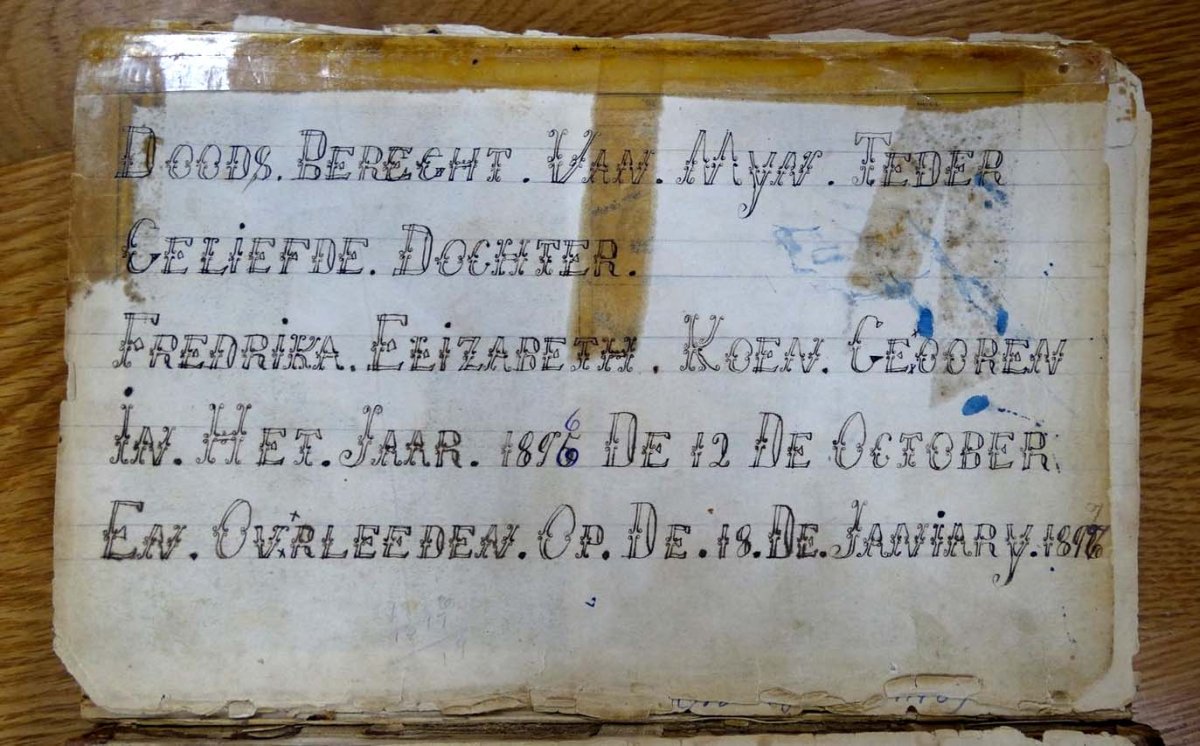 Doods. Berecht. Van. Myn. Teder
Geliefde. Dochter.
Fredrika. Eelizabeth. Koen. Geboren
in. Het. Jaar. 1896 De 12 De October
En. Overleeden. Op. De. 18. De. Janiary. 1897